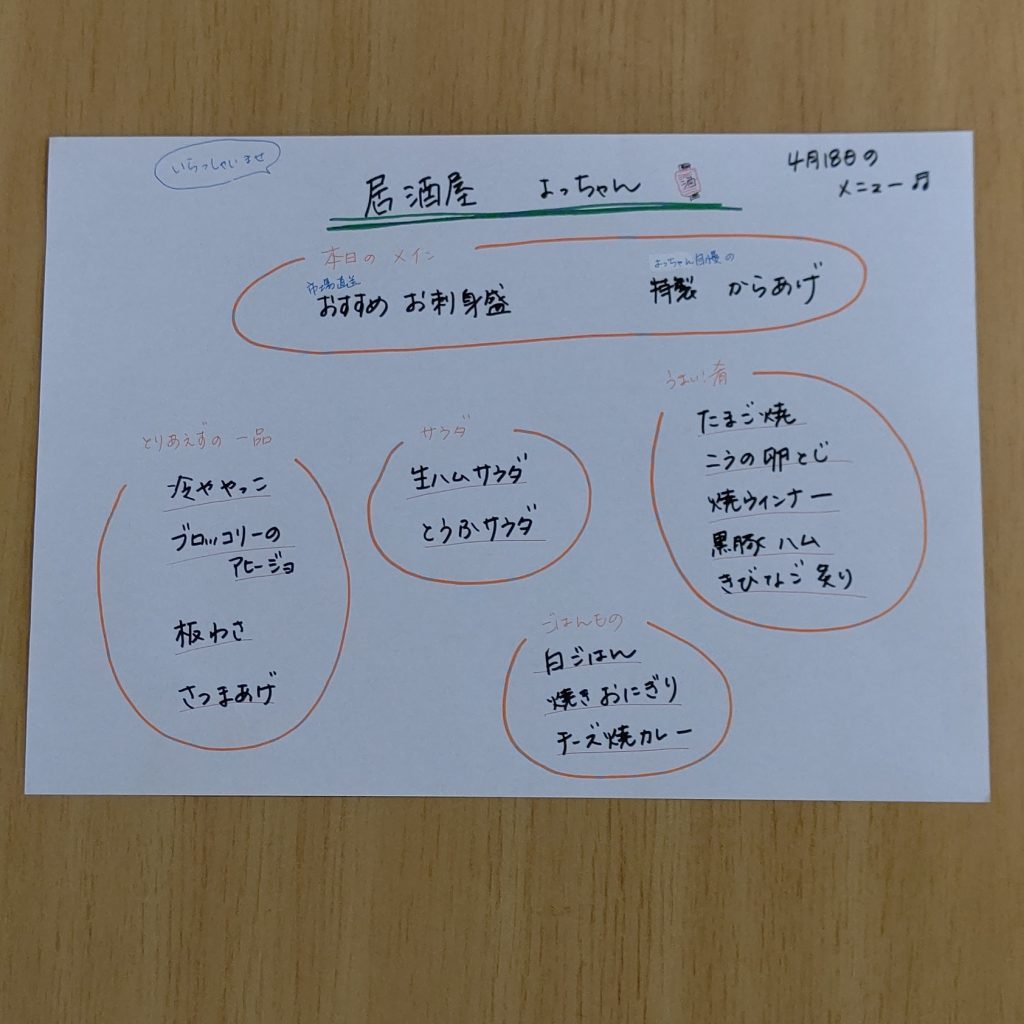 いらっしゃいませ
居酒屋 よっちゃん
酒
4月18日の
メニュー♬
本日の メイン
市場直送
おすすめ お刺身盛
よっちゃん自慢の
特製 からあげ
とりあえずの 一品
冷ややっこ
ブロッコリーの
アヒージョ
板わさ
さつまあげ
サラダ
生ハムサラダ
とうふサラダ
うまい!肴
たまご焼
にらの卵とじ
焼ウィンナー
黒豚ハム
きびなご 炙り
ごはんもの
白ごはん
焼きおにぎり
チーズ焼カレー